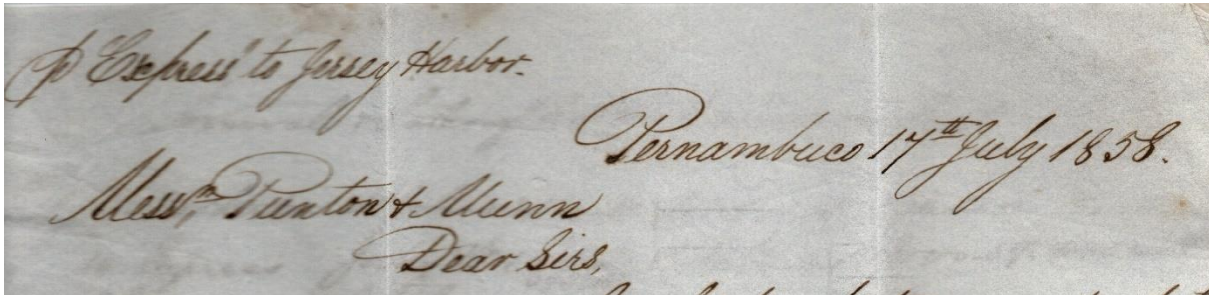 p "Express" to Jersey Harbor.
Pernambuco 17th July 1858.
Messrs, Punton & Munn
Dear Sirs,